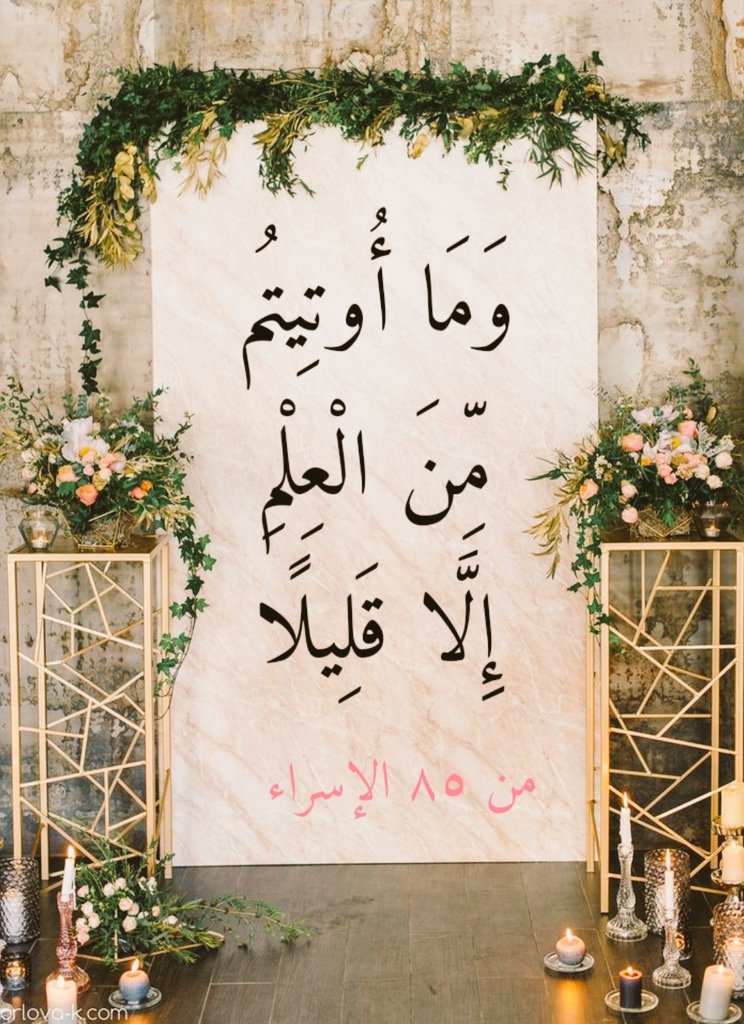 وَمَا أُوتِيتُم
مِّنَ الْعِلْمِ
إِلَّا قَلِيلًا
من ٨٥ الإسراء
orlova-k.com